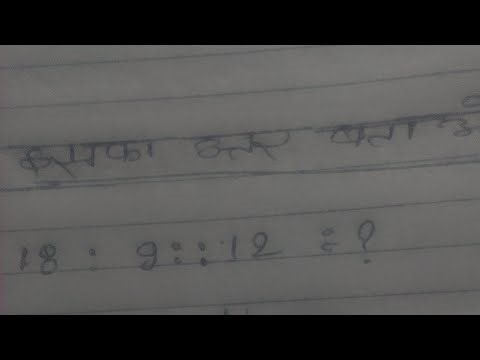 इसका उत्तर बताओ
18 : 9 :: 12 : ?